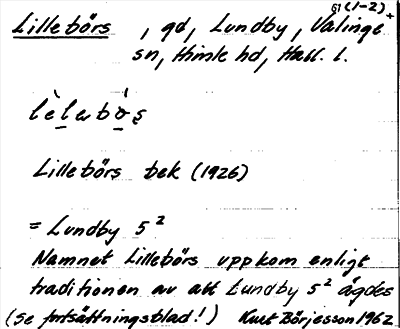 §1 (1-2)
Lillebörs , gd, Lundby, Valinge
sn, Himle hd, Hall. l.
Lillebörs bek (1926)
= Lundby 5²
Namnet Lillebörs uppkom enligt
traditionen av att Lundby 5² ägdes
(Se fortsättningsblad!) Kurt Börjesson 1962